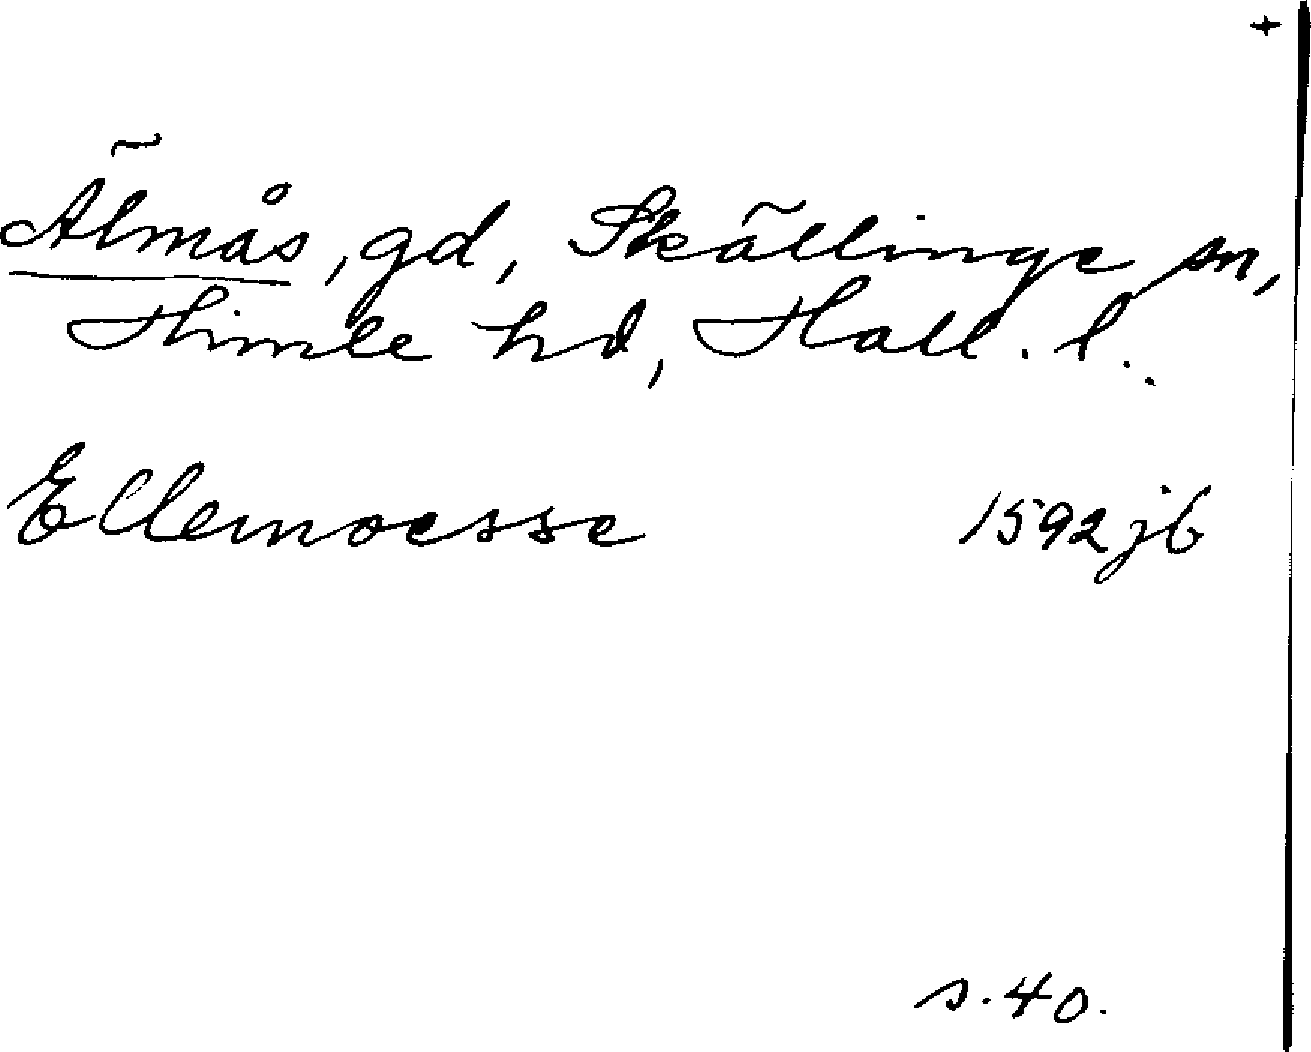 +
Älmås, gd, Skällinge sn,
Himle hd, Hall. l.
Ellemoesse 1592 jb
s. 40.